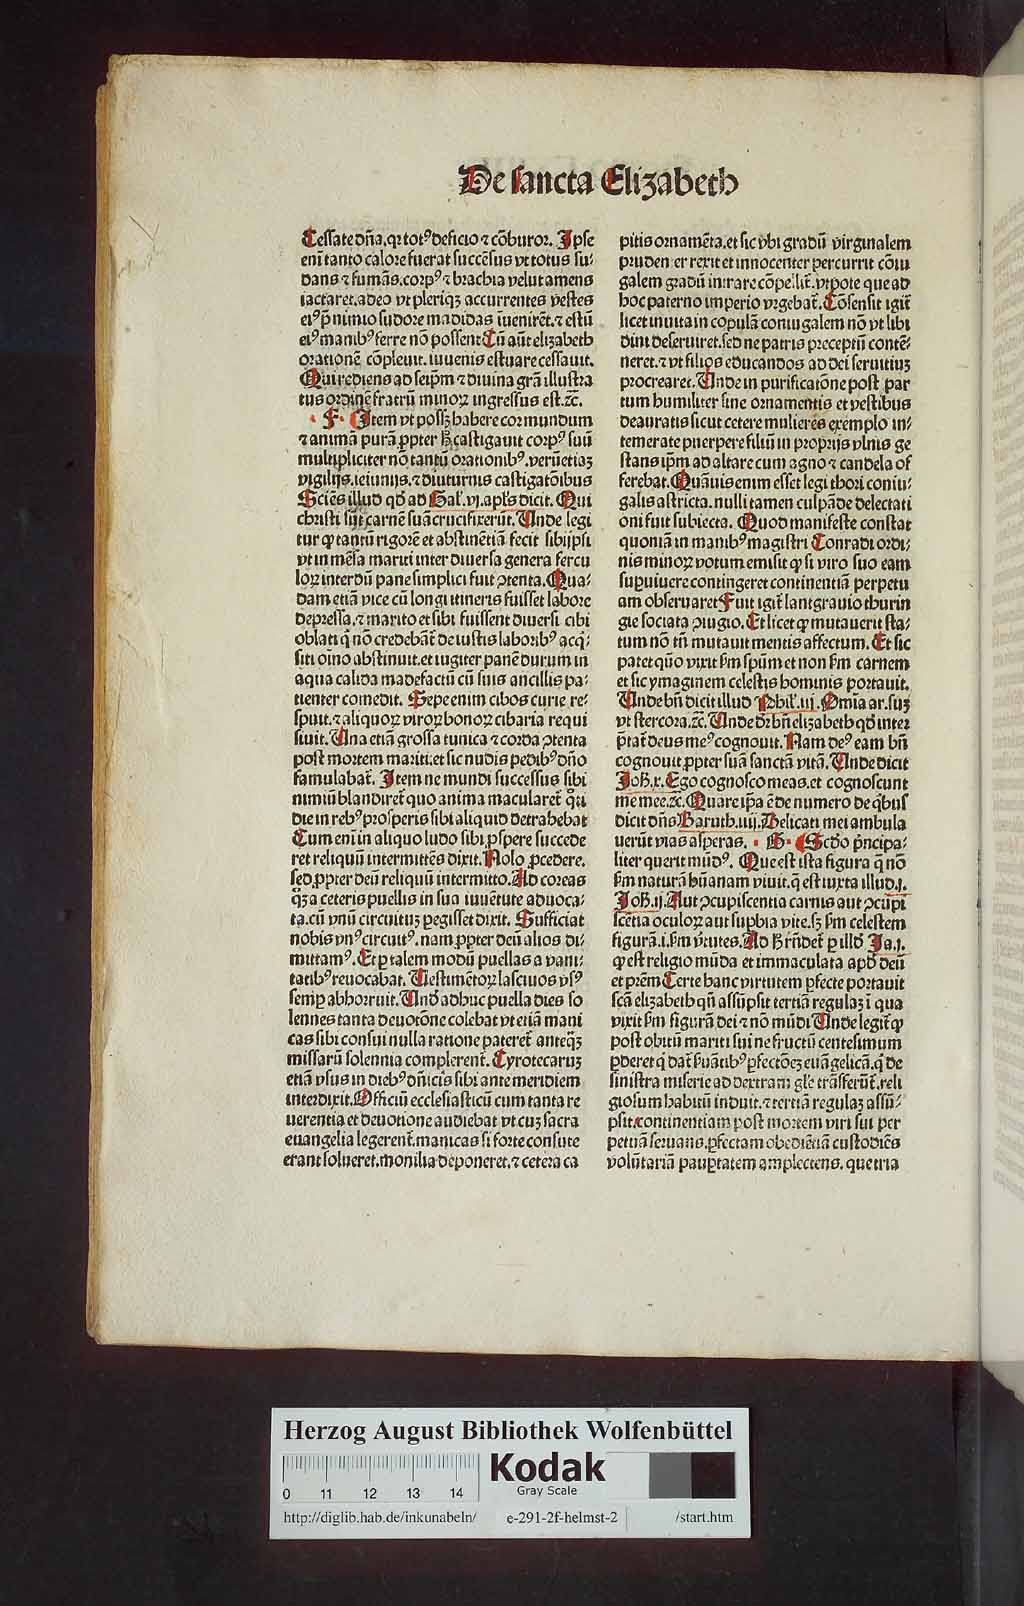 De sancta Elizabeth
Cessate dn̄a, qꝛ totꝰ deficio ⁊ cōburor. Ipse
enī tanto calore fuerat succēsus vt totus su⸗
dans ⁊ fumās. corpꝰ ⁊ brachia velut amens
iactaret. adeo vt pleriqꝫ accurrentes vestes
eiꝰ p̄ nimio sudore madidas īuenirēt. ⁊ estū
eiꝰ manibꝰ ferre nō possent. Cū aūt elizabeth
orationē cōpleuit. iuuenis estuare cessauit.
Qui rediens ad seip̄m ⁊ diuina grā illustra
tus ordinē fratrū minoꝝ ingressus est. ⁊c̄.
· F · Item vt possꝫ habere cor mundum
⁊ animā purā ꝓpter ꝙ castigauit corpꝰ suū
multipliciter nō tantū orationibꝰ. verūetiaꝫ
vigilijs. ieiunijs. ⁊ diuturnis castigatōibus
Sciēs illud qd̄ ad Gal̄. vj. apl̄s dicit. Qui
christi sūt carnē suā crucifixerūt. Unde legi
tur ꝙ tantū rigorē et abstinētiā fecit sibijpsi
vt in mēsa mariti inter diuersa genera fercu
loꝝ interdū pane simplici fuit ↄtenta. Qua⸗
dam etiā vice cū longi itineris fuisset labore
depressa. ⁊ marito et sibi fuissent diuersi cibi
oblati q̄ nō credebāt̄ de iustis laboribꝰ acq̄⸗
siti oīno abstinuit. et iugiter panē durum in
aqua calida madefactū cū suis ancillis pa⸗
tienter comedit. Sepe enim cibos curie re⸗
spuit. ⁊ aliquoꝝ viroꝝ bonoꝝ cibaria requi
siuit. Una etiā grossa tunica ⁊ corda ↄtenta
post mortem mariti. et sic nudis pedibꝰ dn̄o
famulabat̄. Item ne mundi successus sibi
nimiū blandiret̄ quo anima macularet̄ q̄ti
die in rebꝰ prosperis sibi aliquid detrahebat
Cum enī in aliquo ludo sibi ꝓspere succede
ret reliquū intermittēs dixit. Nolo ꝓcedere.
sed ꝓpter deū reliquū intermitto. Ad coreas
qꝫ a ceteris puellis in sua iuuētute aduoca⸗
ta. cū vnū circuituꝫ ꝑegisset dixit. Sufficiat
nobis vnꝰ circuitꝰ. nam ꝓpter deū alios di⸗
mittamꝰ. Et ꝑ talem modū puellas a vani⸗
tatibꝰ reuocabat. Uestimētoꝝ lasciuos vsꝰ
semꝑ abhorruit. Und̄ adhuc puella dies so
lennes tanta deuotōne colebat vt etiā mani
cas sibi consui nulla ratione pateret̄ anteqꝫ
missarū solennia complerent̄. Cyrotecaruꝫ
etiā vsus in diebꝰ dn̄icis sibi ante meridiem
interdixit. Officiū ecclesiasticū cum tanta re
uerentia et deuotione audiebat vt cuꝫ sacra
euangelia legerent̄. manicas si forte consute
erant solueret. monilia deponeret. ⁊ cetera ca
pitis ornamēta. et sic vbi gradū virginalem
prudenter rexit et innocenter percurrit cōiu
galem gradū intrare cōpellit̄. vtpote que ad
hoc paterno imperio vrgebat̄. Cōsensit igit̄
licet inuita in copulā coniugalem nō vt libi
dini deseruiret. sed ne patris preceptū contē⸗
neret. ⁊ vt filios educandos ad dei seruitiuꝫ
procrearet. Unde in purificatōne post par
tum humiliter sine ornamentis et vestibus
deauratis sicut cetere mulieres exemplo in⸗
temerate puerpere filiū in proprijs vlnis ge
stans ip̄m ad altare cum agno ⁊ candela of
ferebat. Quāuis enim esset legi thori coniu⸗
galis astricta. nulli tamen culpāde delectati
oni fuit subiecta. Quod manifeste constat
quoniā in manibꝰ magistri Conradi ordi⸗
nis minoꝝ votum emisit ꝙ si viro suo eam
suꝑuiuere contingeret continentiā perpetu
am obseruaret Fuit igit̄ lantgrauio thurin
gie sociata ↄiugio. Et licet ꝙ mutauerit sta⸗
tum nō tn̄ mutauit mentis affectum. Et sic
patet quō vixit ẜm spūm et non ẜm carnem
et sic ymaginem celestis hominis portauit.
Unde bn̄ dicit illud Phil̄. iij. Omīa ar. suꝫ
vt stercora. ⁊c̄. Unde dꝛ bn̄ elizabeth qd̄ inter
p̄tat̄ deus meꝰ cognouit. Nam deꝰ eam bn̄
cognouit ꝓpter suā sanctā vitā. Unde dicit
Joh̄. x. Ego cognosco meas. et cognoscunt
me mee. ⁊c̄. Quare ip̄a ē de numero de q̄bus
dicit dn̄s. Baruth. iiij. Delicati mei ambula
uerūt vias asperas. · G · Scd̄o p̄ncipa⸗
liter querit mūdꝰ. Que est ista figura q̄ nō
ẜm naturā hūanam viuit. q̄ est iuxta illud. j.
Joh̄. ij. Aut ↄcupiscentia carnis aut ↄcupi
scētia oculoꝝ aut suꝑbia vite. sꝫ ẜm celestem
figurā. i. ẜm v̄tutes. Ad ꝙ rn̄det̄ ꝑ illd̄ Ja. j.
ꝙ est religio mūda et immaculata apd̄ deū
et prēm Certe hanc virtutem ꝑfecte portauit
scā elizabeth qn̄ assūpsit tertiā regulaꝫ ī qua
vixit ẜm figurā dei ⁊ nō mūdi Unde legit̄ ꝙ
post obitū mariti sui ne fructū centesimum
ꝑderet q̄ dat̄ ẜuātibꝰ ꝑfectōeꝫ euāgelicā. q̄ de
sinistra miserie ad dextram gl̄e trāsferūt̄. reli
giosum habitū induit. ⁊ tertiā regulaꝫ assū⸗
psit. continentiam post mortem viri sui per
petuā seruans. ꝑfectam obediētiā custodiēs
volūtariā pauꝑtatem amplectens. que tria
Herzog August Bibliothek Wolfenbüttel
0 11 12 13 14
Kodak
Gray Scale
http://diglib.hab.de/inkunabeln/ e-291-2f-helmst-2 /start.htm